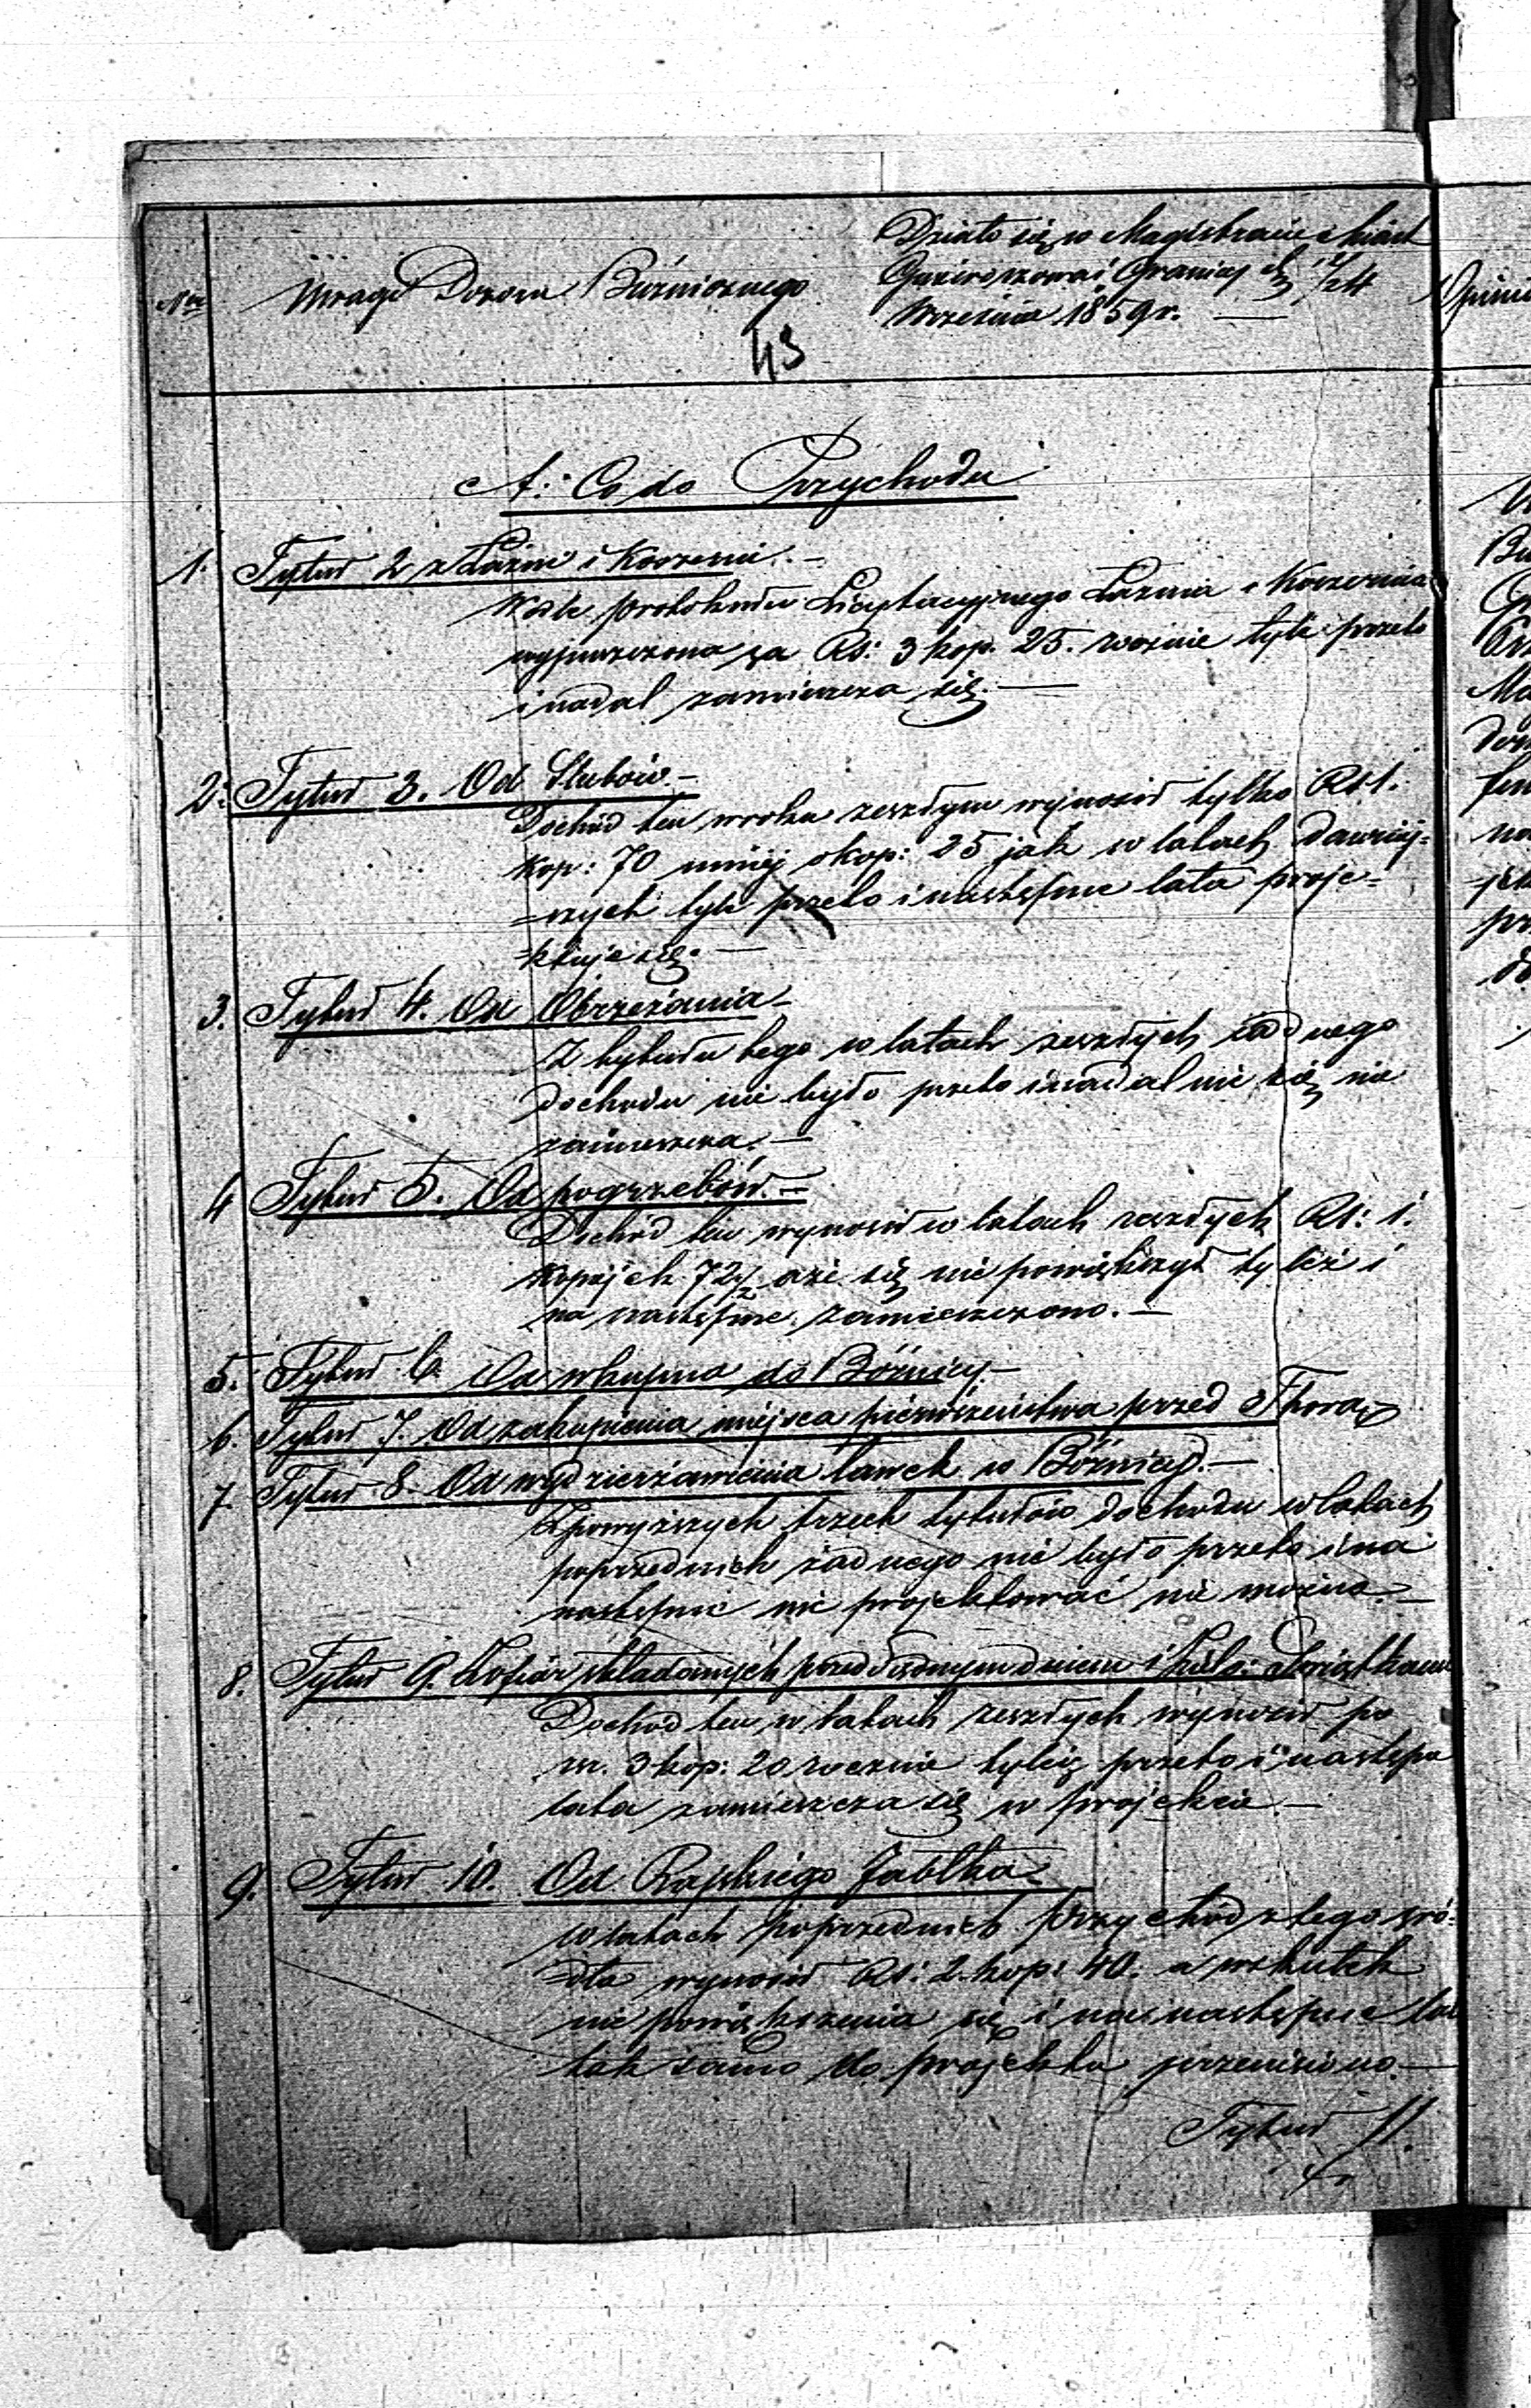 Nr
Uwagi Dozoru Bóźnicznego
Działo się w Magistracie Miast
Gniewoszowa i Granicy d. 12/24
Września 1859 r. —
43
A: Co do Przychodu
1. Tytuł 2 z Łaźni i Koszerni. —
Wedle protokółu Licytacyjnego Łaznia i Koszernia
wypuszczona za Rs: 3 kop. 25. rocznie tyle przeto
i nadal zamieszcza się. —
2. Tytuł 3. Od Slubów —
Dochód ten w roku zeszłym wynosił tylko Rs 1.
kop: 70 mniéj o kop: 25 jak w latach dawniej=
=szych tyle przeto i następne lata proje=
=ktuje się. —
3. Tytuł 4. Od Obrzezania —
Z tytułu tego w latach zeszłych żadnego
dochodu nie było przeto i nadal nic się nie
zamieszcza. —
4 Tytuł 5. Od pogrzebów. —
Dochód ten wynosił w latach zeszłych Rs: 1.
kopiejek 72½ a że się nie powiększył tyleż i
na następne zamieszczono. —
5. Tytuł 6. Od wkupna do Bóźnicy —
6. Tytuł 7. Od zakupienia miejsca pierwszeństwa przed Thorą
7. Tytuł 8. Od wydzierżawienia ławek w Bóźnicy. —
Z powyższych trzech tytułów dochodu w latach
poprzednich żadnego nie było przeto i na
następnie nic projektować nie można. —
8. Tytuł 9. Z ofiar składanych przed Sądnym dniem i Świątkami
Dochód ten w latach zeszłych wynosił po
rs. 3 kop: 20 rocznie tyleż przeto i następne
lata zamieszcza się w projekcie. —
9. Tytuł 10. Od Rajskiego Jabłka —
W latach poprzednich przychód z tego źró=
=dła wynosił Rs: 2 kop: 40. a wskutek
nie powiększenia się i na następne lat
tak samo do projektu przeniesiono. —
Tytuł 11.
Opini